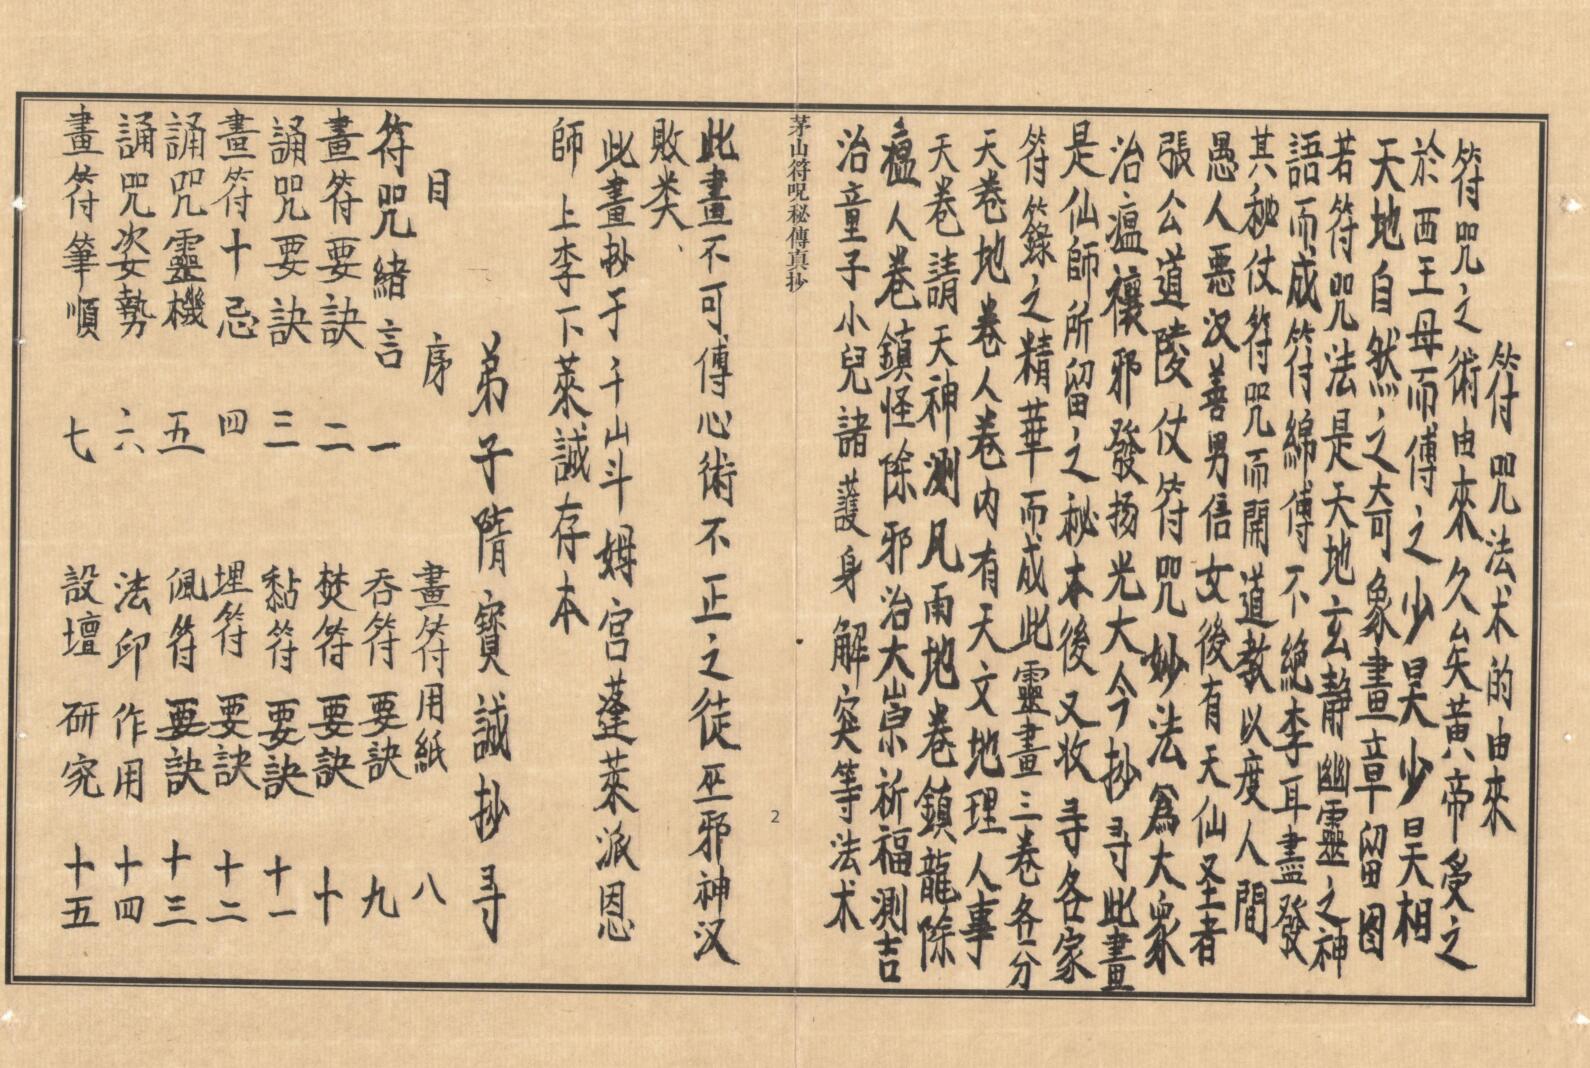 符咒法术的由來
符咒之術由來久矣黄帝受之
於西王母而傳之少昊少昊相
天地自然之奇象畫章留图
若符咒法是天地玄静幽靈之神
語而成符綿傳不絶李耳盡發
其秘仗符咒而開道教以度人間
愚人惡汉善男信女後有天仙圣者
張公道陵仗符咒妙法爲大衆
治瘟禳邪發扬光大今抄寻此畫
是仙師所留之秘本後又收寻各家
符籙之精華而成此靈畫三卷各分
天卷地卷人卷内有天文地理人事
天卷請天神测凡雨地卷鎮龍除
瘟人卷鎮怪除邪治大崇祈福测吉
治童子小兒諸護身解突等法术
茅山符呪秘傳真抄
2
此畫不可傳心術不正之徒巫邪神汉
敗类、
此畫抄于千山斗姆宫蓬莱派恩
師上李下莱誠存本
弟子隋寶誠抄寻
目序
符咒緒言一
畫符要訣二
誦咒要訣三
畫符十忌四
誦咒靈機五
誦咒姿勢六
畫符筆順七
畫符用紙八
吞符要訣九
焚符要訣十
黏符要訣十一
埋符要訣十二
佩符要訣十三
法印作用十四
設壇研究十五